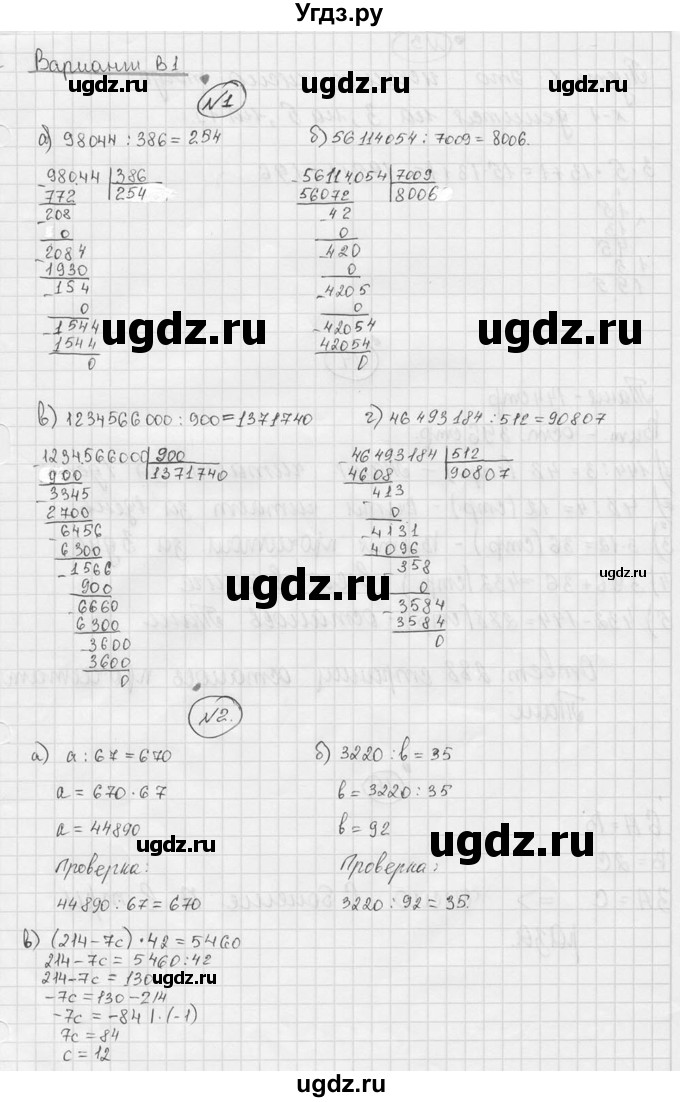 Угдз.ру
Вариант В1
№1
а) 98044 : 386 = 254
98044 | 386
772 | 254
208
0
2084
1930
154
0
1544
1544
0
б) 56114054 : 7009 = 8006.
56114054 | 7009
56072 | 8006
42
0
420
0
4205
0
42054
42054
0
ugdz.ru
ugdz.ru
ugdz.ru
ugdz.ru
в) 1234566000 : 900 = 1371740
1234566000 | 900
900 | 1371740
3345
2700
6456
6300
1566
900
6660
6300
3600
3600
0
г) 46493184 : 512 = 90807
46493184 | 512
4608 | 90807
413
0
4131
4096
358
0
3584
3584
0
ugdz.ru
ugdz.ru
ugdz.ru
№2.
а) a : 67 = 670
a = 670 · 67
a = 44890
Проверка:
44890 : 67 = 670
б) 3220 : b = 35
b = 3220 : 35
b = 92
Проверка:
3220 : 92 = 35.
в) (214-7c) · 42 = 5460
214-7c = 5460 : 42
214-7c = 130
-7c = 130 - 214
-7c = -84 | · (-1)
7c = 84
c = 12
ugdz.ru
ugdz.ru
ugdz.ru
ugdz.ru
ugdz.ru
ugdz.ru
ugdz.ru